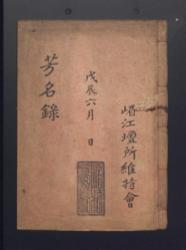 岐江壇所維持會
戊辰六月 日
芳名錄